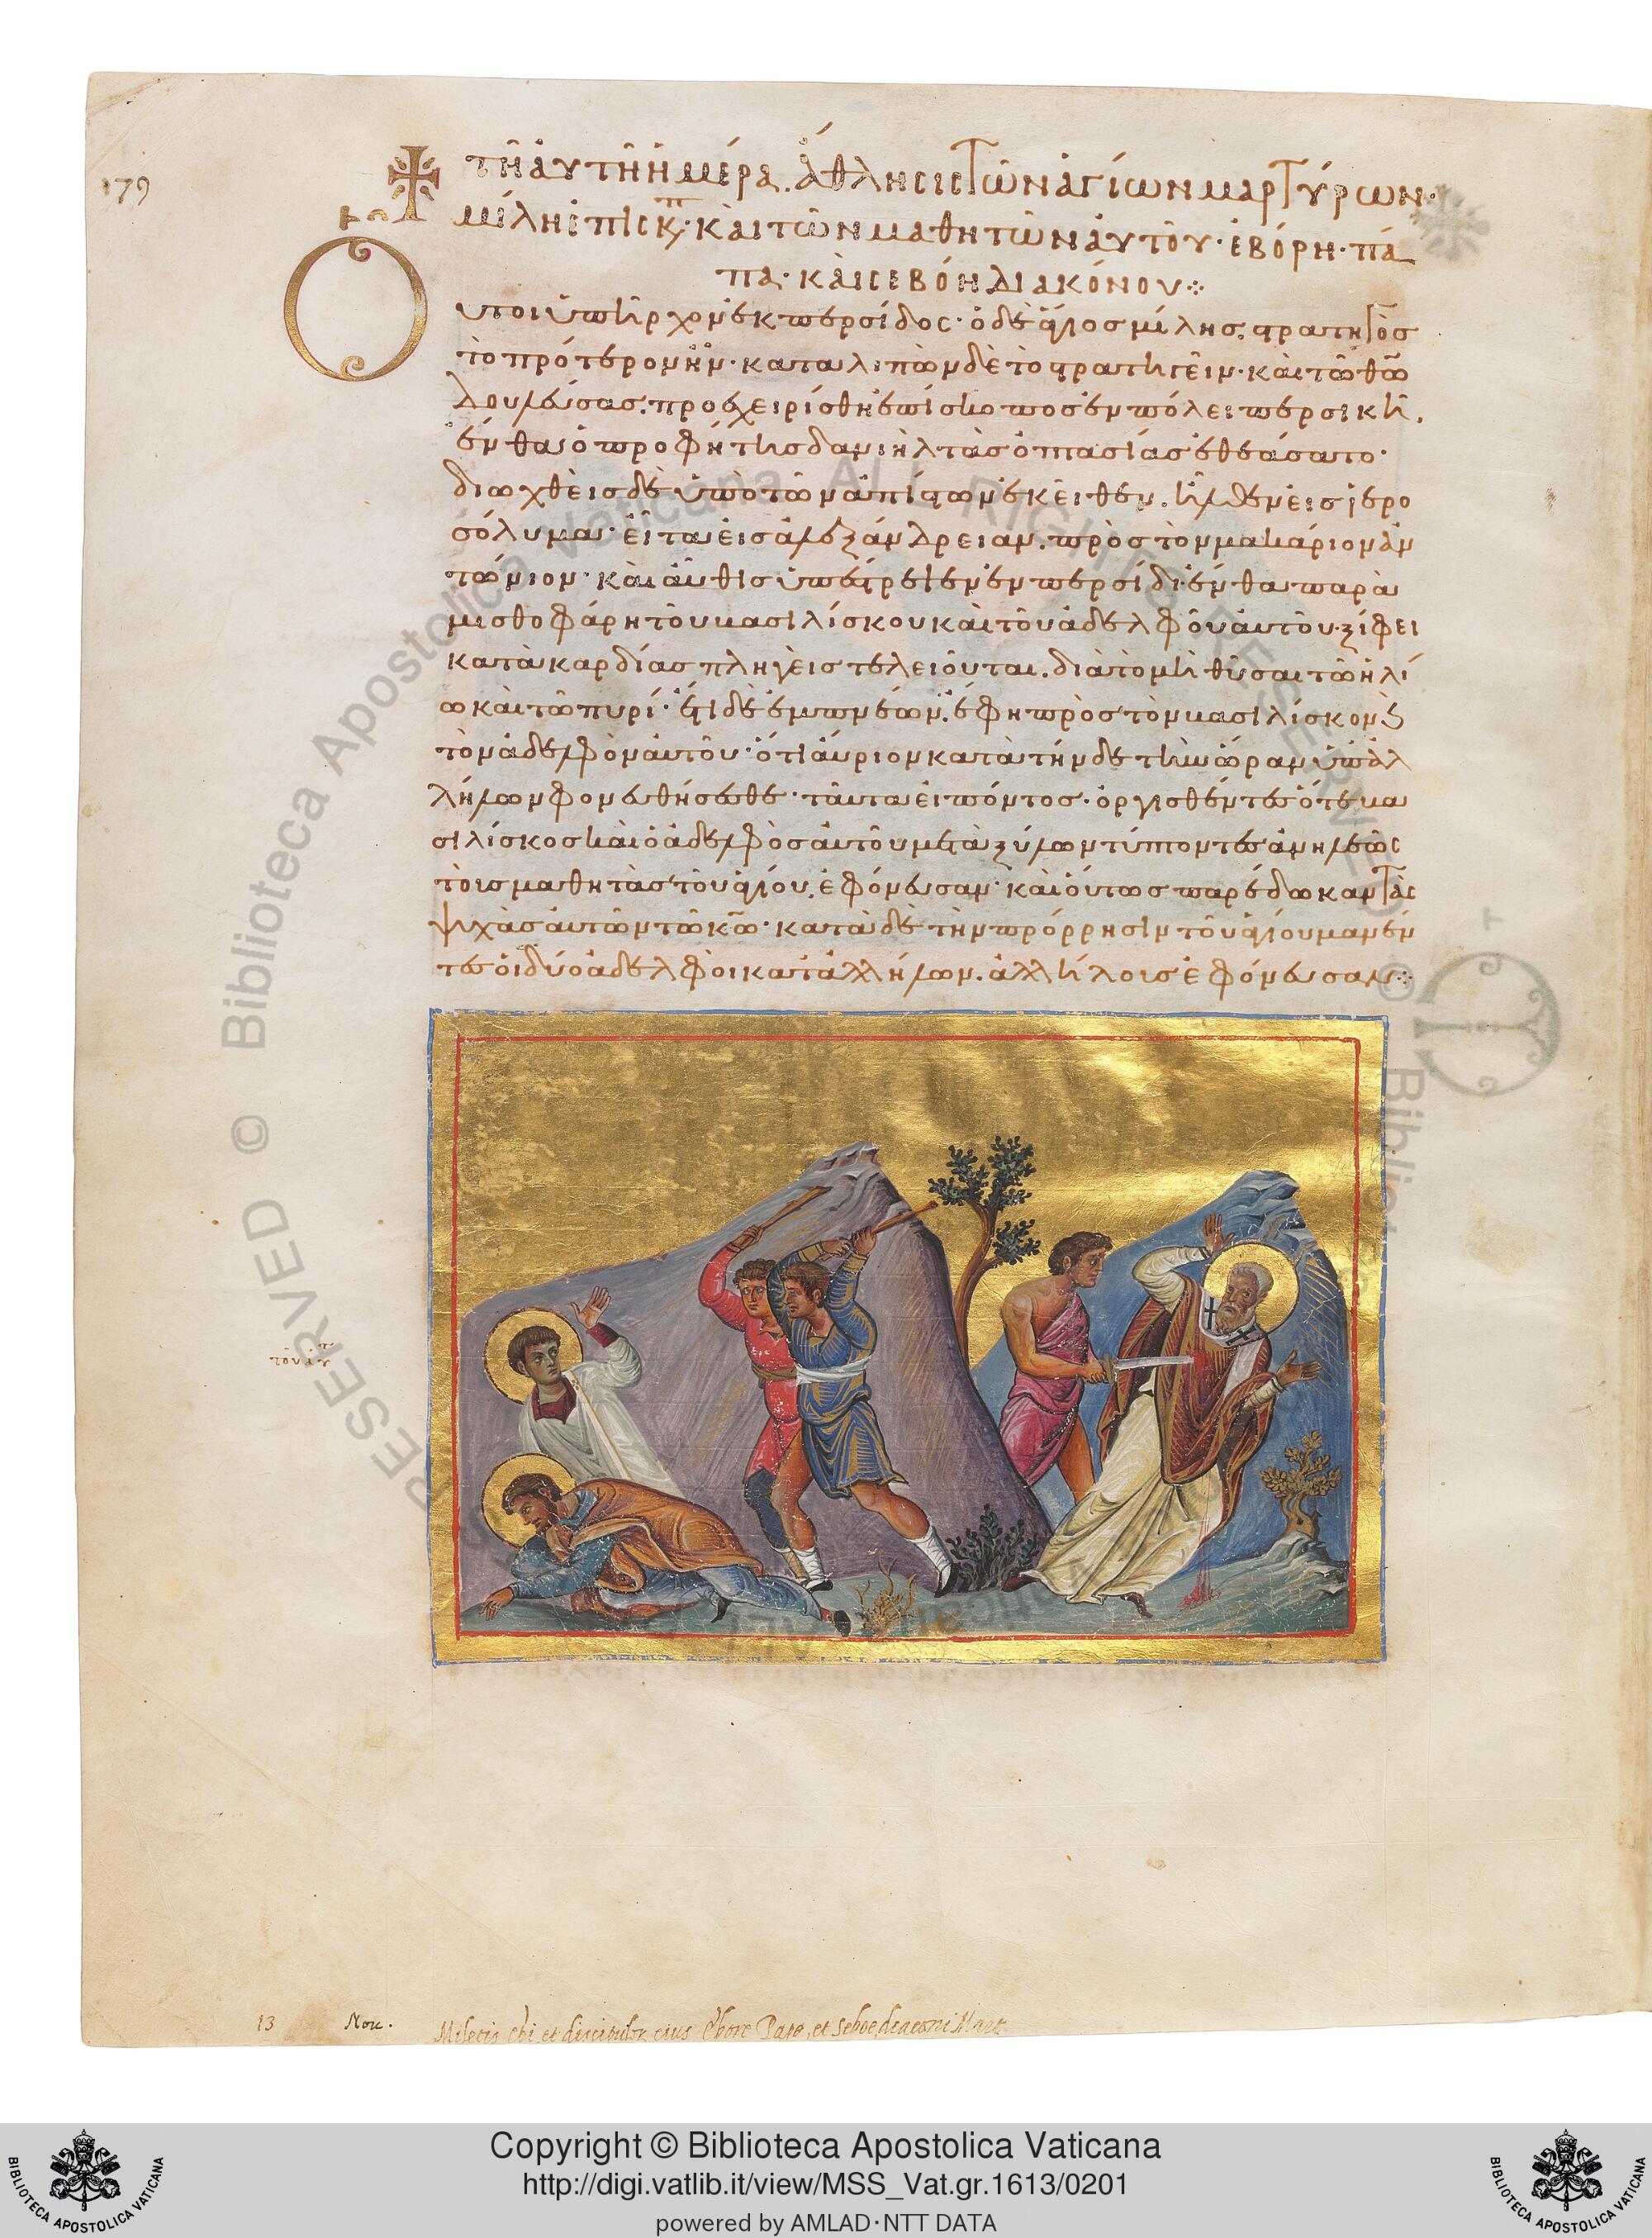 179
τῆ ἀυτῆ ἡμέρα. ἄθλησις τῶν ἁγίων μαρτύρων·
μίλη ἐπισκ· κὰι τῶν μαθητῶν ἀυτοῦ· ἐβόρη· πά
πα· κὰι σεβόη διακόνου
Οὗτοι ὑπῆρχον ἐκ περσίδος· ὁ δὲ ἅγιος μίλης, στρατηγὸς
τὸ πρότερον ἦν· καταλιπὼν δὲ τὸ στρατηγεῖν· κὰι τῶ θῶ
δουλεύσας, προεχειρίσθη ἐπίσκοπος ἐν πόλει περσικῆ,
ἔνθα ὁ προφήτης δανιὴλ τὰς ὀπτασίας ἐθεάσατο·
διωχθεὶς δὲ ὑπὸ τῶν ἀπίστων ἐκεῖθεν, ἦλθεν εἰς ἱερο
σόλυμα· εἶτα εἰς ἀλεξάνδρειαν, πρὸς τὸν μακάριον ἀν
τώνιον· κὰι αὖθις ὑπέστρεψεν ἐν περσίδι· ἔνθα παρὰ
μισθοφάρη τοῦ βασιλίσκου κὰι τοῦ ἀδελφοῦ ἀυτοῦ· ξίφει
κατὰ καρδίας πληγεὶς τελειοῦται, διὰ τὸ μὴ θῦσαι τῶ ἡλί
ω κὰι τῶ πυρί· ἔτι δὲ ἐμπνέων, ἔφη πρὸς τὸν βασιλίσκον κ
τὸν ἀδελφὸν ἀυτοῦ· ὅτι ἄυριον κατὰ τήνδε τὴν ὥραν ὑπ' ἀλ
λήλων φονευθήσεσθε· ταῦτα εἰπόντος· ὀργισθέντες ὅτε βα
σιλίσκος κὰι ὁ ἀδελφὸς ἀυτοῦ μετὰ ξύλων τύπτοντες ἀνηλεῶς
τοὺς μαθητὰς τοῦ ἁγίου, ἐφόνευσαν· κὰι οὕτως παρέδωκαν τὰς
ψυχὰς ἀυτῶν τῶ κῶ· κατὰ δὲ τὴν πρόρρησιν τοῦ ἁγίου μανέν
τες οἱ δύο ἀδελφοὶ κατ' ἀλλήλων, ἀλλήλους ἐφόνευσαν
13 Nou. Miletis Epi et discipulor. eius Ebore Pape, et Seboe diaconi Mart.
© Biblioteca Apostolica Vaticana ALL RIGHTS RESERVED
Copyright © Biblioteca Apostolica Vaticana
http://digi.vatlib.it/view/MSS_Vat.gr.1613/0201
powered by AMLAD·NTT DATA
BIBLIOTECA APOSTOLICA VATICANA
BIBLIOTECA APOSTOLICA VATICANA